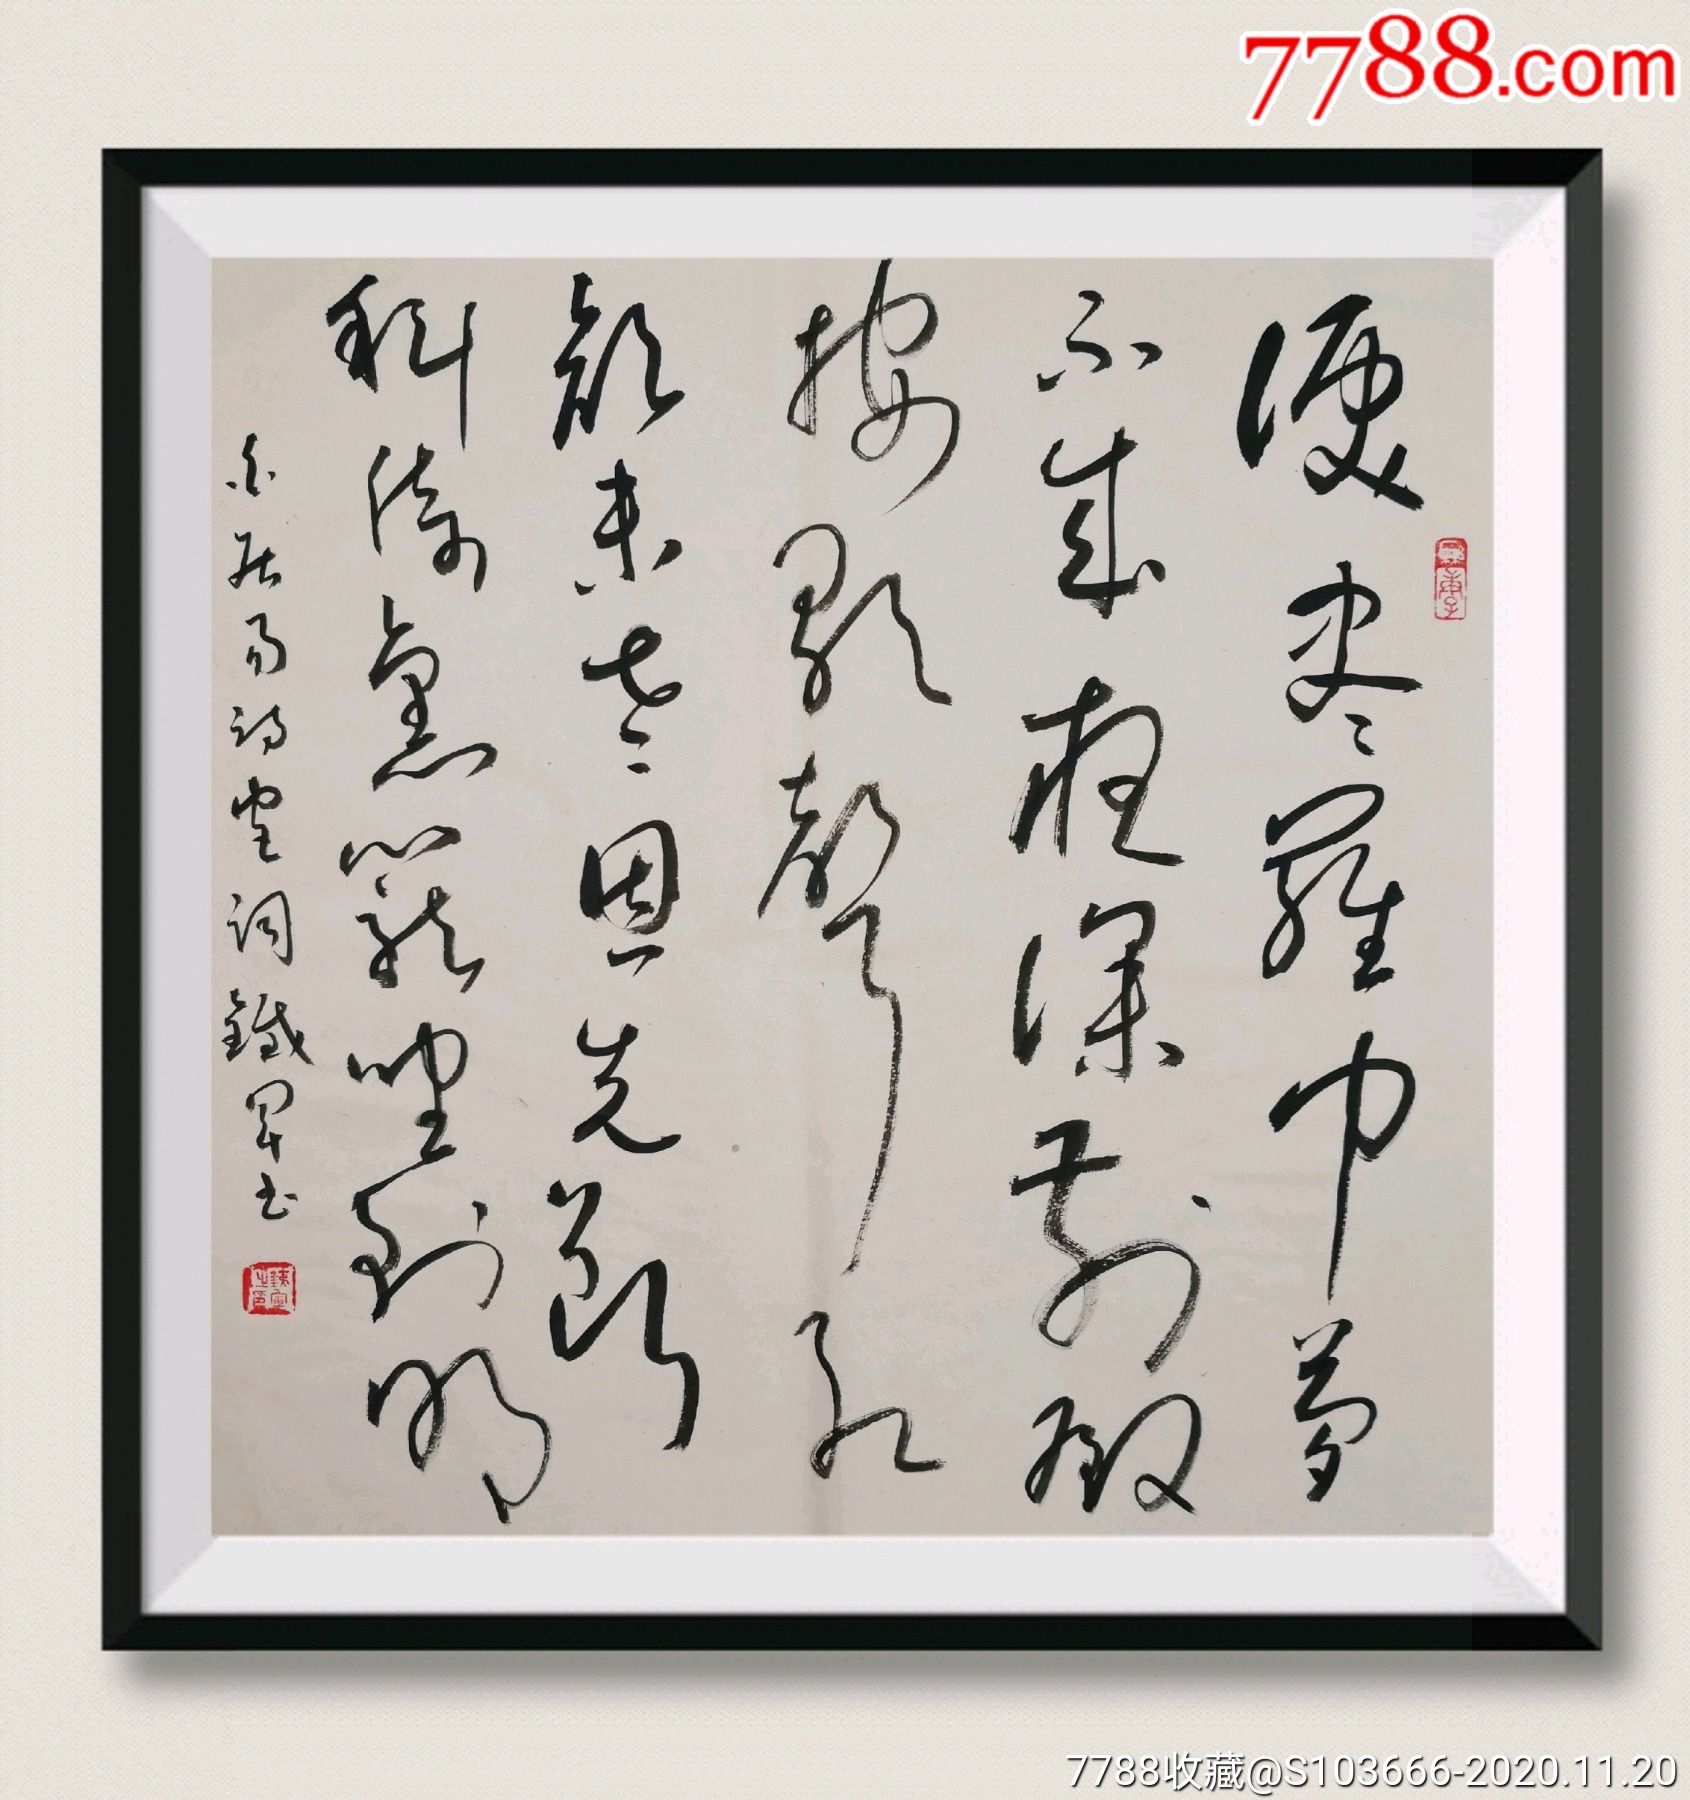 7788.com
淚尽羅巾夢
不成夜深前殿
按歌聲红
顏未老恩先斷
斜倚熏籠坐到明
白居易诗宮詞鐵軍书
7788收藏@S103666-2020.11.20